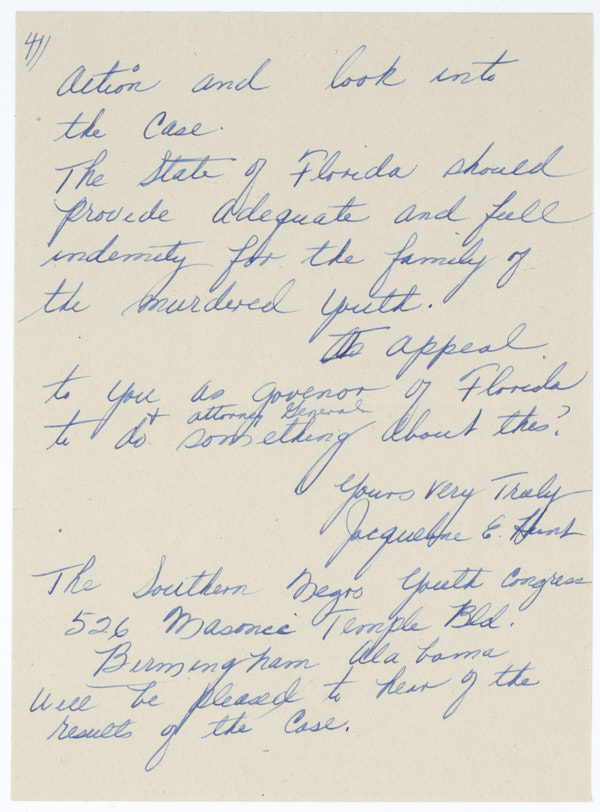 4//
Action and look into
the Case.
The State of Florida should
provide adequate and full
indemnity for the family of
the murdered youth.
appeal
to you as Govenor of Florida
+ attorney General
to do something about this?
Yours Very Truly
Jacqueline E. Hunt
The Southern Negro Youth Congress
526 Masonic Temple Bld.
Birmingham Alabama
will be pleased to hear of the
results of the Case.